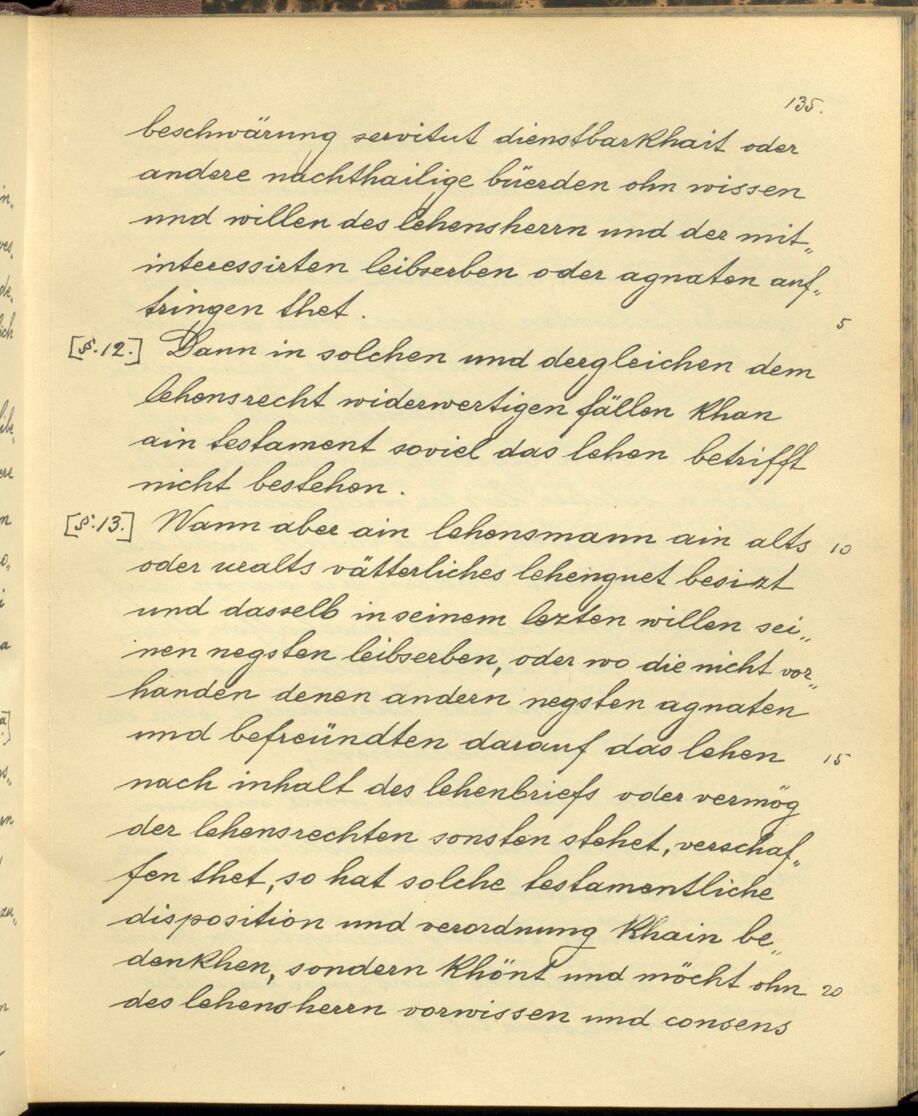 135.
beschwärung servitut dienstbarkhait oder
andere nachthailige büerden ohn wissen
und willen des lehensherrn und der mit„
interessirten leibserben oder agnaten auf„
tringen thet.
5
[§.12.] Dann in solchen und dergleichen dem
lehensrecht widerwertigen fällen khan
ain testament soviel das lehen betrifft
nicht bestehen.
[§.13.] Wann aber ain lehensmann ain alts 10
oder uralts vätterliches lehenguet besizt
und dasselb in seinem lezten willen sei„
nen negsten leibserben, oder wo die nicht vor„
handen denen andern negsten agnaten
und befreündten darauf das lehen 15
nach inhalt des lehenbriefs oder vermög
der lehensrechten sonsten stehet, verschaf„
fen thet, so hat solche testamentliche
disposition und verordnung khain be„
denkhen, sondern khönt und möcht ohn 20
des lehensherrn vorwissen und consens